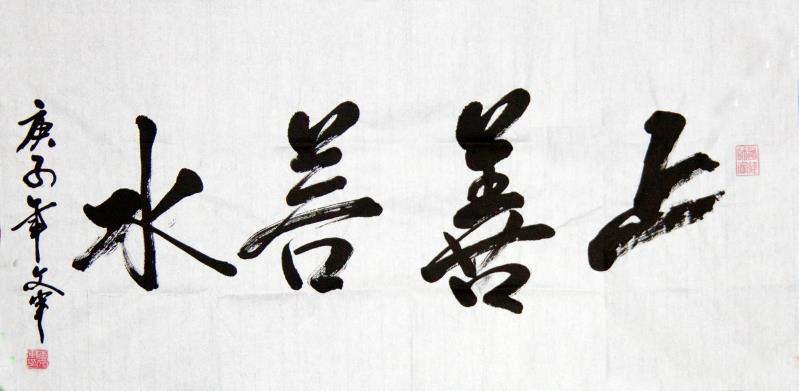 上善若水
庚子年文